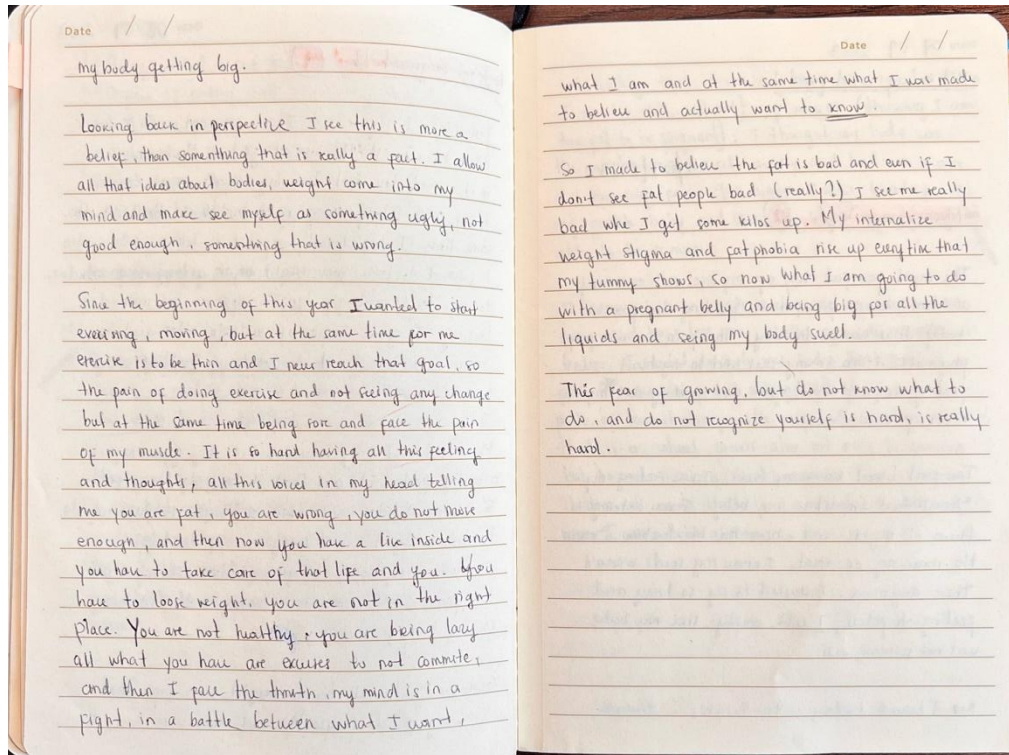 Date / /
my body getting big.
Looking back in perspective I see this is more a
belief, than somenthing that is really a fact. I allow
all that ideas about bodies, weight come into my
mind and make see myself as something ugly, not
good enough, somenthing that is wrong.
Since the beginning of this year I wanted to start
, moving, but at the same time for me
exercise is to be thin and I never reach that goal, so
the pain of doing exercise and not seeing any change
but at the same time being sore and face the pain
of my muscle. It is so hard having all this feeling
and thoughts, all this voices in my head telling
me you are fat, you are wrong, you do not move
enough, and then now you have a live inside and
you have to take care of that life and you. You
have to loose weight, you are not in the right
place. You are not healthy, you are being lazy
all what you have are excuses to not commite,
and then I face the thruth, my mind is in a
fight, in a battle between what I want,
Date / /
what I am and at the same time what I was made
to believe and actually want to know.
So I made to believe the fat is bad and even if I
don't see fat people bad (really?) I see me really
bad whe I get some kilos up. My internalize
weight stigma and fatphobia rise up everytime that
my tummy shows, so now what I am going to do
with a pregnant belly and being big for all the
liquids and seing my body swell.
This fear of growing, but do not know what to
do, and do not recognize yourself is hard, is really
hard.